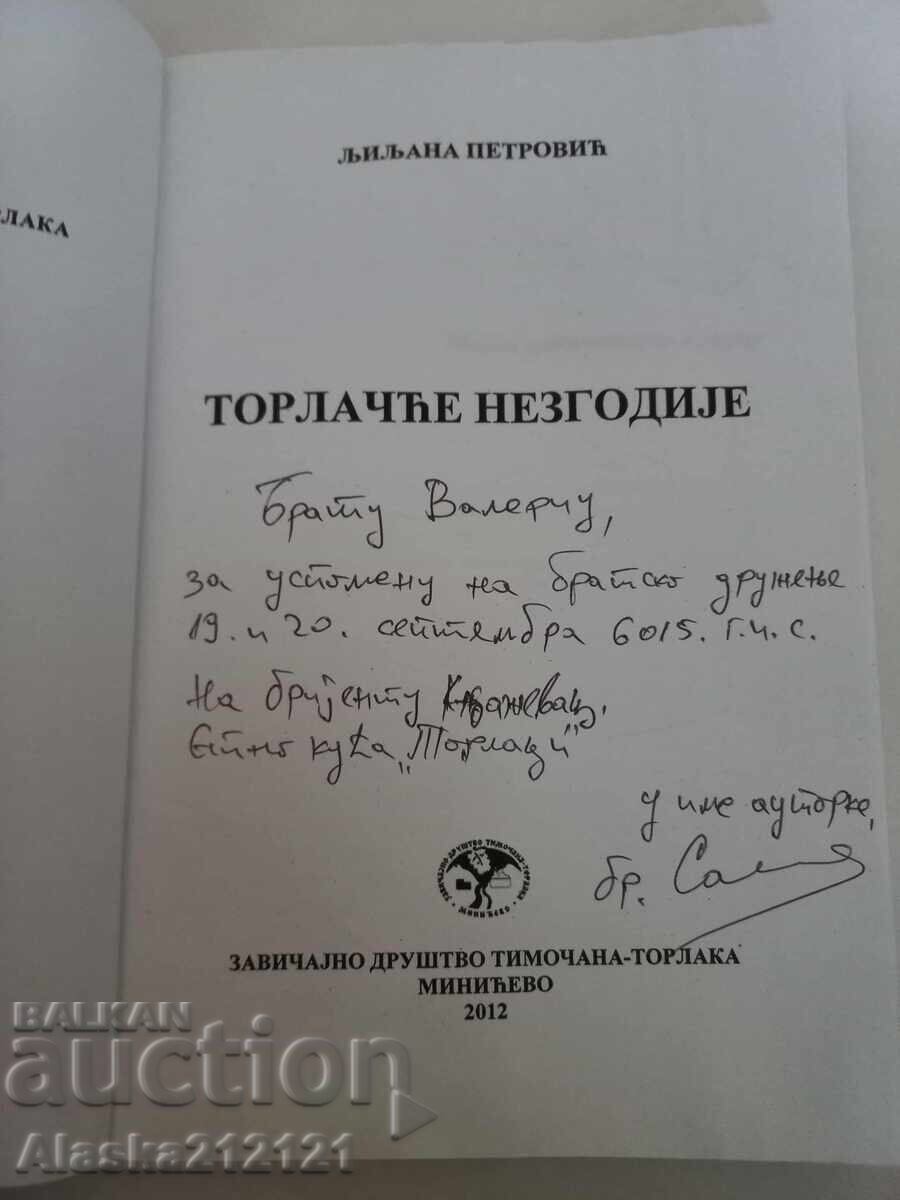 РЛАКА
ЉИЉАНА ПЕТРОВИЋ
ТОРЛАЧЋЕ НЕЗГОДИЈЕ
Брату Валерију,
за успомену на братско дружење
19. и 20. септембра 6015. г.и.с.
На бријенту Књажевац,
Етно кућа „Торлаци"
у име ауторке,
бр. Саша
ЗАВИЧАЈНО ДРУШТВО ТИМОЧАНА-ТОРЛАКА
МИНИЋЕВО
ЗАВИЧАЈНО ДРУШТВО ТИМОЧАНА-ТОРЛАКА
МИНИЋЕВО
2012
BALKAN
auction
Alaska212121